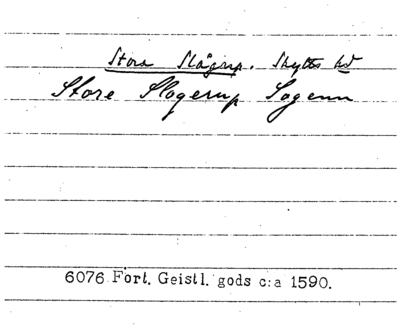 Stora Slågarp. Skytts hd
Store Slogerup Sogenn
6076 Fort. Geistl. gods c:a 1590.